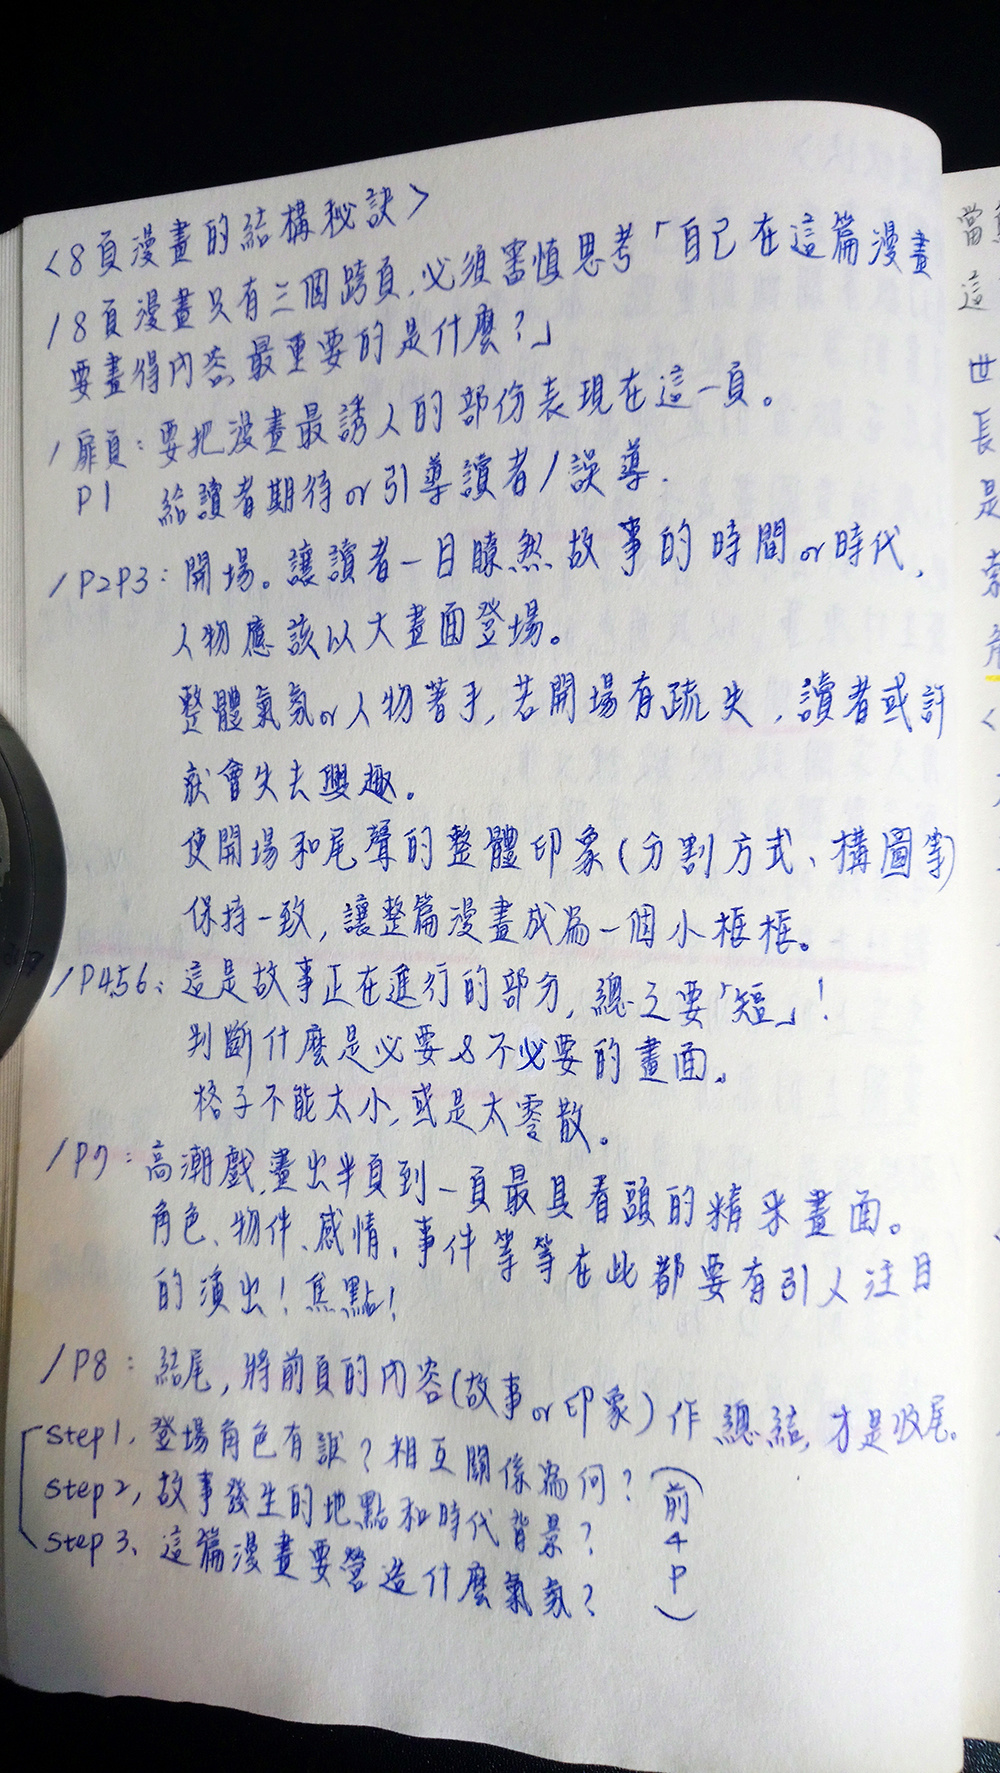 <8頁漫畫的結構秘訣>
/8頁漫畫只有三個跨頁,必須審慎思考「自己在這篇漫畫
要畫得內容,最重要的是什麼?」
/扉頁:要把漫畫最誘人的部份表現在這一頁。
P1 給讀者期待or引導讀者/誤導.
/P2P3:開場。讓讀者一目瞭然故事的時間or時代,
人物應該以大畫面登場。
整體氣氛or人物著手,若開場有疏失,讀者或許
就會失去興趣。
使開場和尾聲的整體印象(分割方式、構圖等)
保持一致,讓整篇漫畫成為一個小框框。
/P4.5.6:這是故事正在進行的部分,總之要「短」!
判斷什麼是必要&不必要的畫面。
格子不能太小,或是太零散。
/P7:高潮戲,畫出半頁到一頁最具看頭的精采畫面。
角色、物件、感情、事件等等在此都要有引人注目
的演出!焦點!
/P8:結尾,將前頁的內容(故事or印象)作總結,才是收尾。
Step1,登場角色有誰?相互關係為何?
Step2,故事發生的地點和時代背景?
Step3、這篇漫畫要營造什麼氣氛?
(前4P)
當
這
世
長
是
索
<